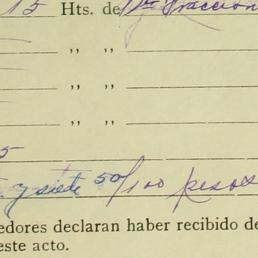 15 Hts. de fraccion
,, ,,
,, ,,
,, ,,
5
y siete 50/100 pesos
edores declaran haber recibido de
este acto.